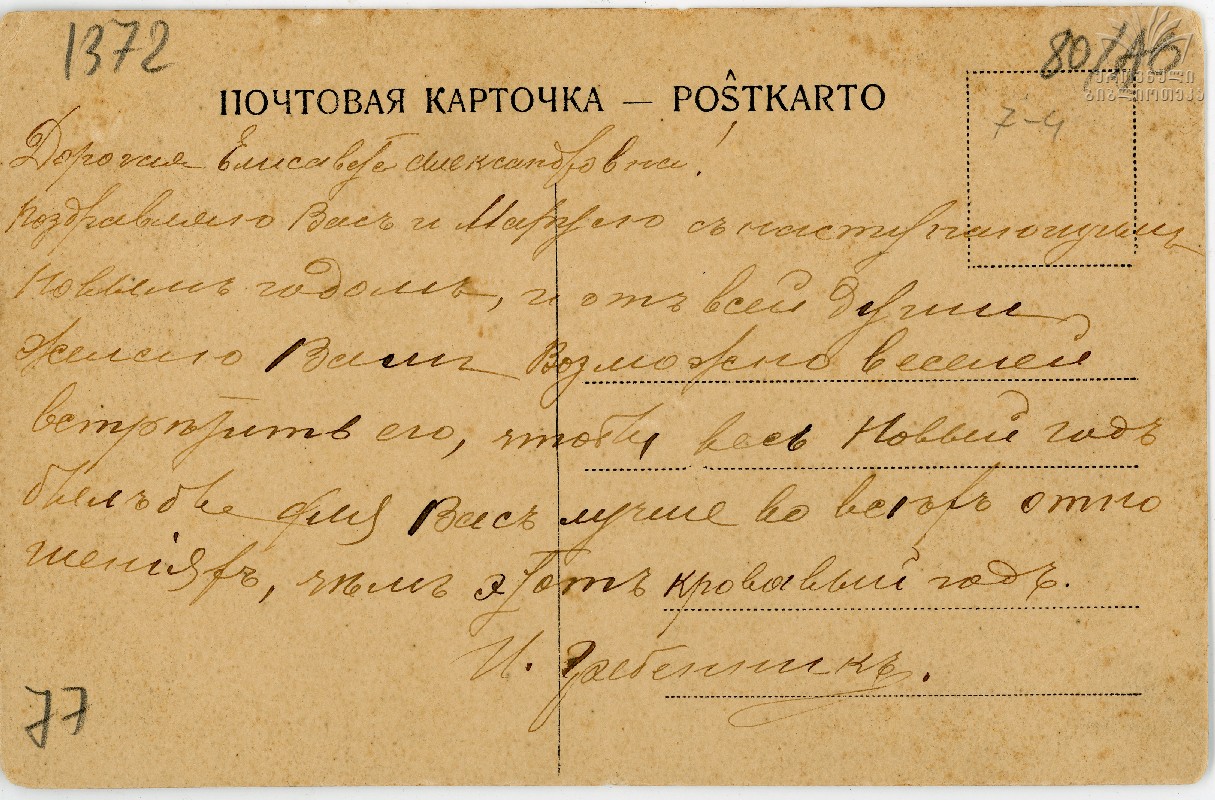 1372
807Аб
ПОЧТОВАЯ КАРТОЧКА — POŜTKARTO
7-4
Дорогая Елисавета Александровна!
поздравляю Васъ и Марусю съ наступающимъ
Новымъ годомъ, и отъ всей души
желаю Вамъ возможно веселей
встрѣтить его, чтобы весь Новый годъ
былъ бы для Васъ лучше во всѣхъ отно
шеніяхъ, чѣмъ этотъ кровавый годъ.
И. Гребенникъ.
77